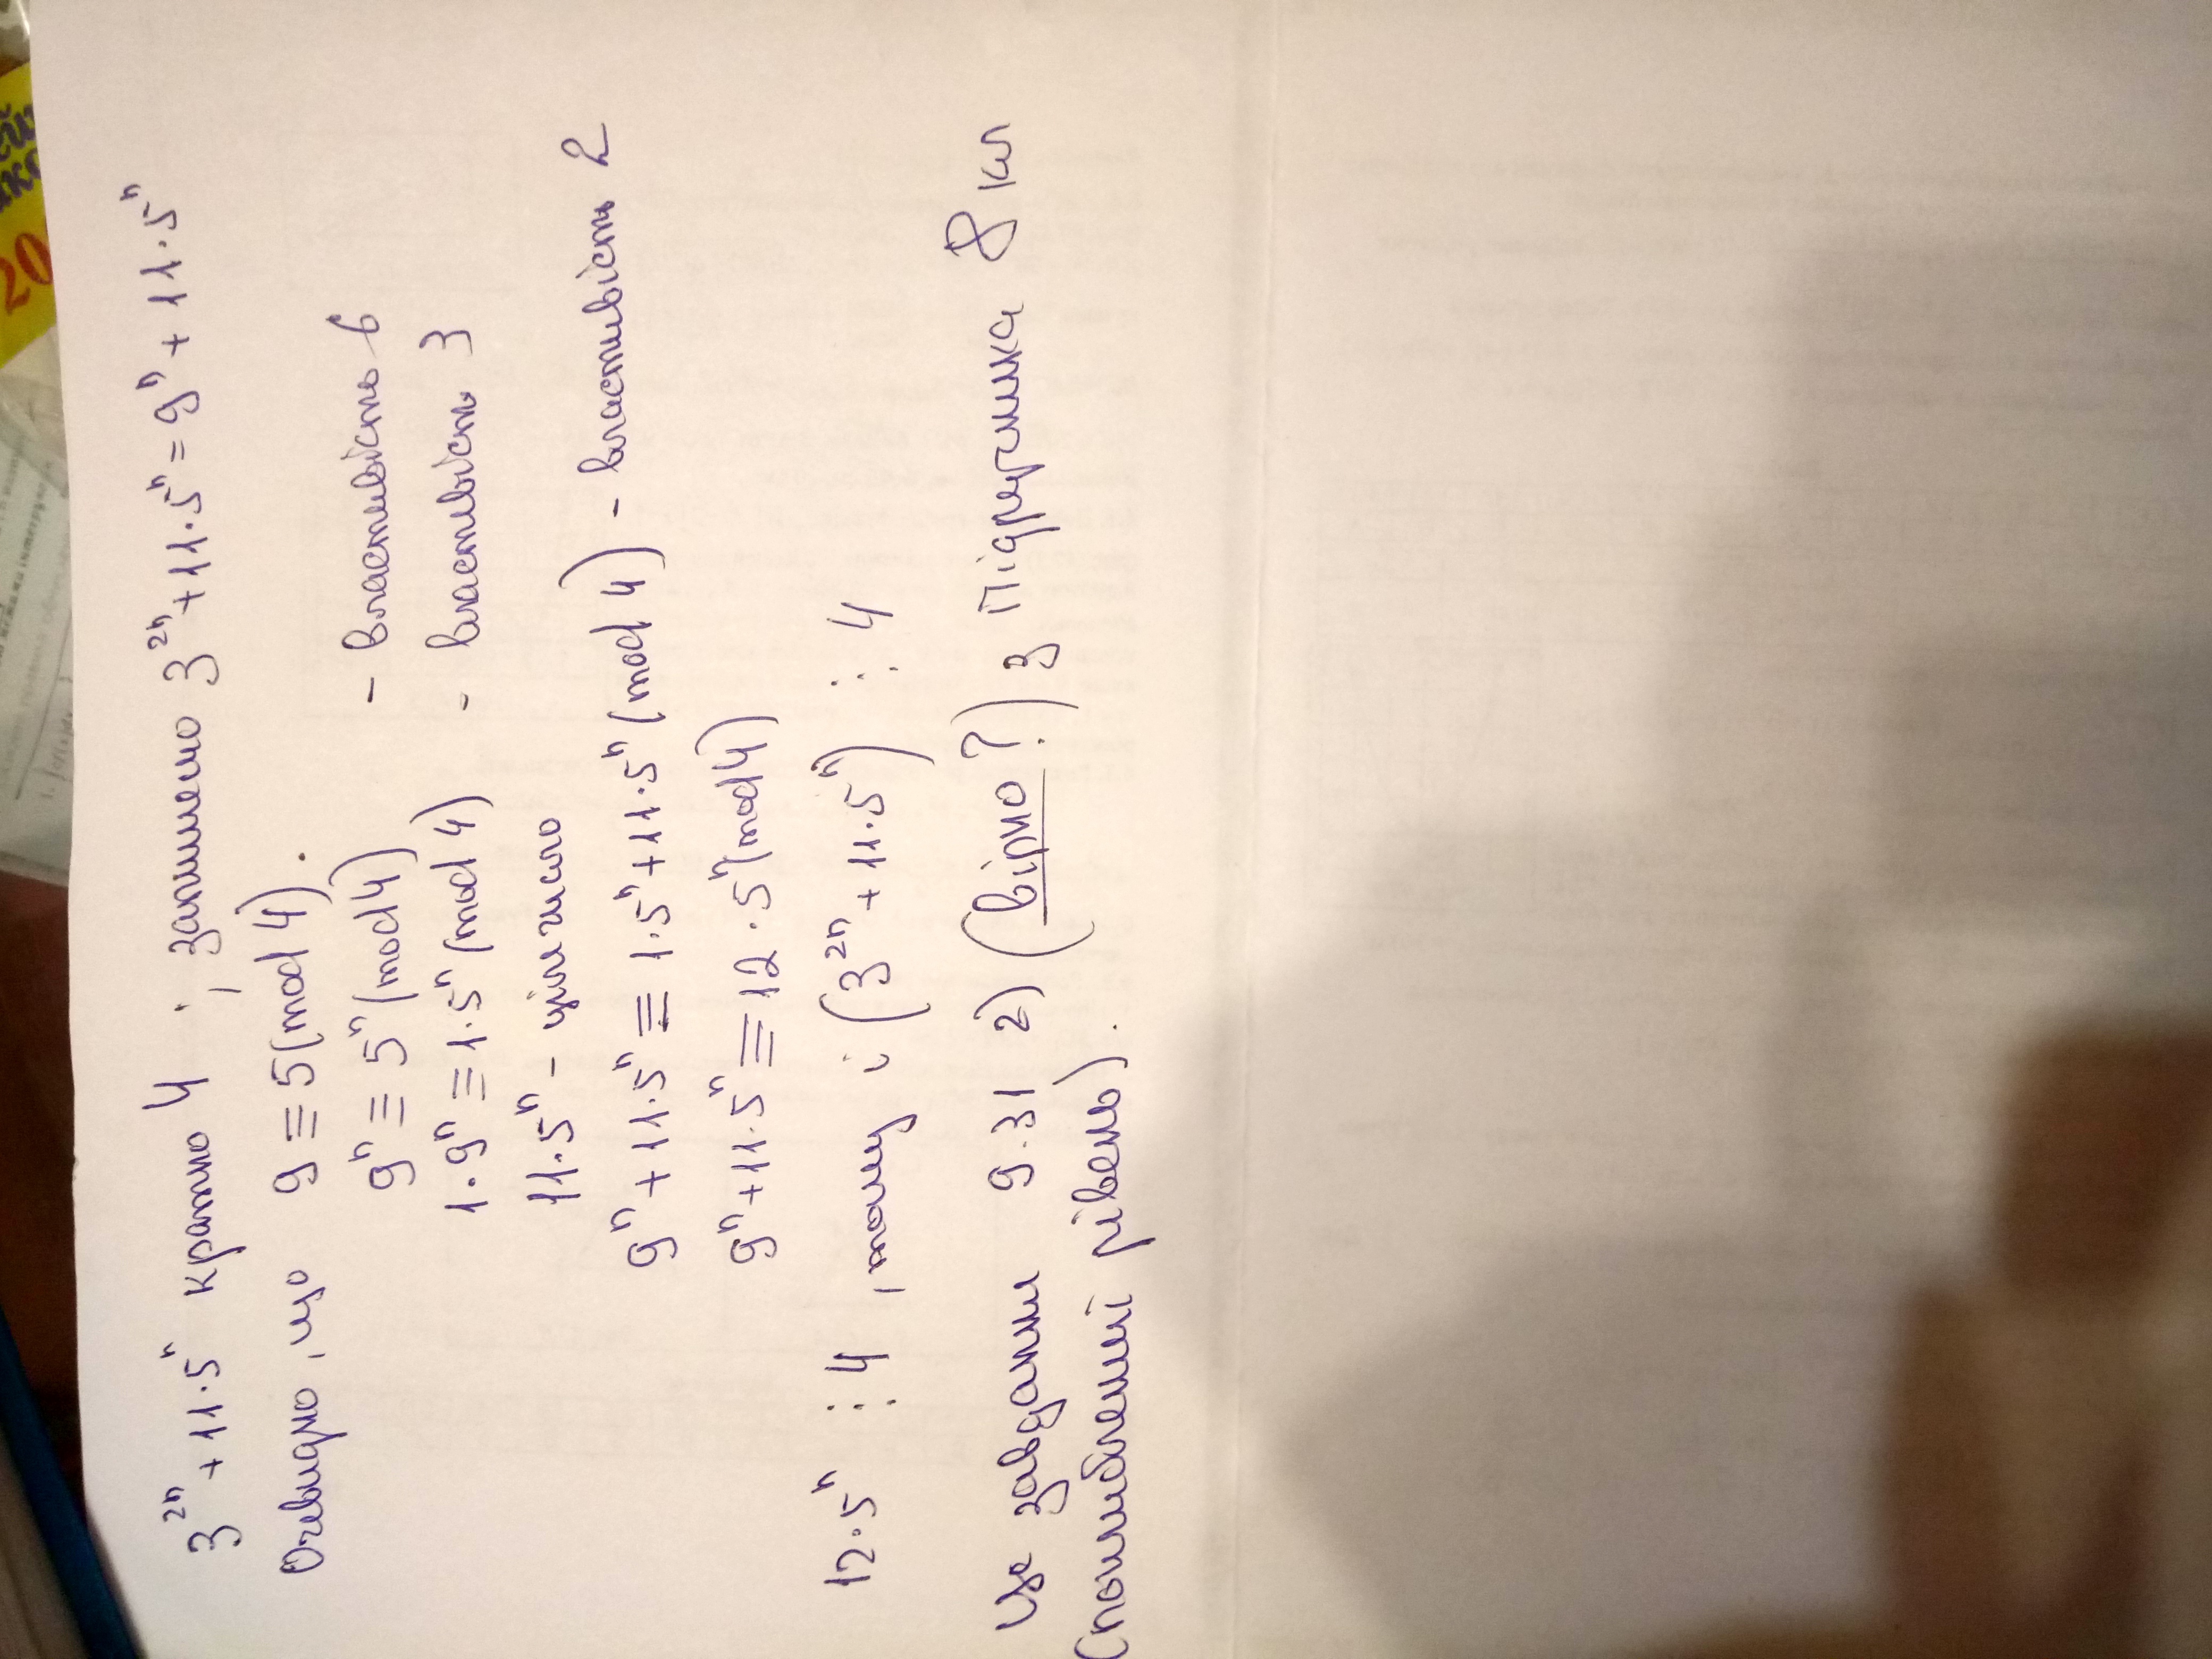 3²ⁿ + 11·5ⁿ кратно 4 ; запишемо 3²ⁿ + 11·5ⁿ = 9ⁿ + 11·5ⁿ
Очевидно, що 9 ≡ 5 (mod 4).
9ⁿ ≡ 5ⁿ (mod 4) - властивість 6
1·9ⁿ ≡ 1·5ⁿ (mod 4) - властивість 3
11·5ⁿ - ціле число
9ⁿ + 11·5ⁿ ≡ 1·5ⁿ + 11·5ⁿ (mod 4) - властивість 2
9ⁿ + 11·5ⁿ ≡ 12·5ⁿ (mod 4)
12·5ⁿ ⋮ 4, тому і (3²ⁿ + 11·5ⁿ) ⋮ 4
Це завдання 9.31 2) (вірно?) з підручника 8 кл
(поглиблений рівень).
20